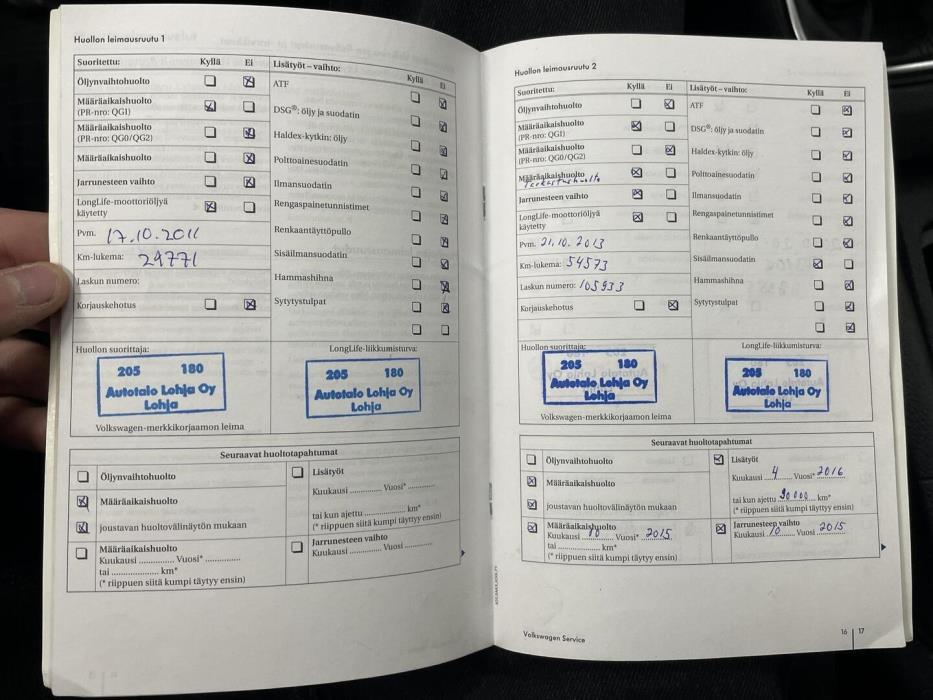 Huollon leimausruutu 1
Suoritettu: Kyllä Ei
Öljynvaihtohuolto
Määräaikaishuolto
(PR-nro: QGI)
Määräaikaishuolto
(PR-nro: QG0/QG2)
Määräaikaishuolto
Jarrunesteen vaihto
LongLife-moottoriöljyä
käytetty
Pvm. 17.10.2011
Km-lukema: 29771
Laskun numero:
Korjauskehotus
Lisätyöt – vaihto: Kyllä Ei
ATF
DSG®: öljy ja suodatin
Haldex-kytkin: öljy
Polttoainesuodatin
Ilmansuodatin
Rengaspainetunnistimet
Renkaantäyttöpullo
Sisäilmansuodatin
Hammashihna
Sytytystulpat
Huollon suorittaja:
205 180
Autotalo Lohja Oy
Lohja
LongLife-liikkumisturva:
205 180
Autotalo Lohja Oy
Lohja
Volkswagen-merkkikorjaamon leima
Seuraavat huoltotapahtumat
Öljynvaihtohuolto
Määräaikaishuolto
joustavan huoltovälinäytön mukaan
Määräaikaishuolto
Kuukausi .............. Vuosi* ..............
tai ...................... km*
(* riippuen siitä kumpi täytyy ensin)
Lisätyöt
Kuukausi ............. Vuosi* .............
tai kun ajettu .................. km*
(* riippuen siitä kumpi täytyy ensin)
Jarrunesteen vaihto
Kuukausi ............. Vuosi .............
Huollon leimausruutu 2
Suoritettu: Kyllä Ei
Öljynvaihtohuolto
Määräaikaishuolto
(PR-nro: QGI)
Määräaikaishuolto
(PR-nro: QG0/QG2)
Määräaikaishuolto
Tarkastushuolto
Jarrunesteen vaihto
LongLife-moottoriöljyä
käytetty
Pvm. 21.10.2013
Km-lukema: 54573
Laskun numero: 105933
Korjauskehotus
Lisätyöt – vaihto: Kyllä Ei
ATF
DSG®: öljy ja suodatin
Haldex-kytkin: öljy
Polttoainesuodatin
Ilmansuodatin
Rengaspainetunnistimet
Renkaantäyttöpullo
Sisäilmansuodatin
Hammashihna
Sytytystulpat
Huollon suorittaja:
205 180
Autotalo Lohja Oy
Lohja
LongLife-liikkumisturva:
205 180
Autotalo Lohja Oy
Lohja
Volkswagen-merkkikorjaamon leima
Seuraavat huoltotapahtumat
Öljynvaihtohuolto
Määräaikaishuolto
joustavan huoltovälinäytön mukaan
Määräaikaishuolto
Kuukausi 10 Vuosi* 2015
tai ...................... km*
(* riippuen siitä kumpi täytyy ensin)
Lisätyöt
Kuukausi 4 Vuosi* 2016
tai kun ajettu 90000 km*
(* riippuen siitä kumpi täytyy ensin)
Jarrunesteen vaihto
Kuukausi 10 Vuosi 2015
Volkswagen Service
16 17